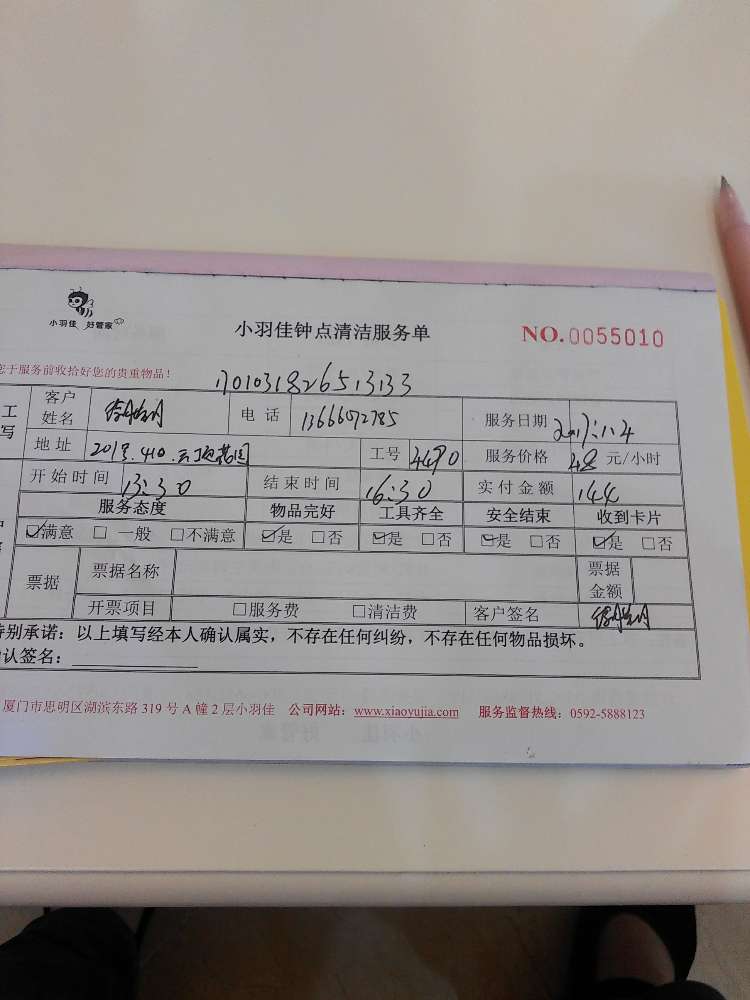 小羽佳 好管家
小羽佳钟点清洁服务单
NO.0055010
您于服务前收拾好您的贵重物品！
1701031826513133
工 客户姓名 电话 13666072785 服务日期 2017.1.4
写 地址 201号.410. 工号 4490 服务价格 48 元/小时
开始时间 13:30 结束时间 16:30 实付金额 144
服务态度 物品完好 工具齐全 安全结束 收到卡片
☑满意 □ 一般 □不满意 ☑是 □否 ☑是 □否 ☑是 □否 ☑是 □否
票据 票据名称 票据金额
开票项目 □服务费 □清洁费 客户签名
特别承诺：以上填写经本人确认属实，不存在任何纠纷，不存在任何物品损坏。
确认签名：
厦门市思明区湖滨东路 319 号 A 幢 2 层小羽佳 公司网站：www.xiaoyujia.com 服务监督热线：0592-5888123